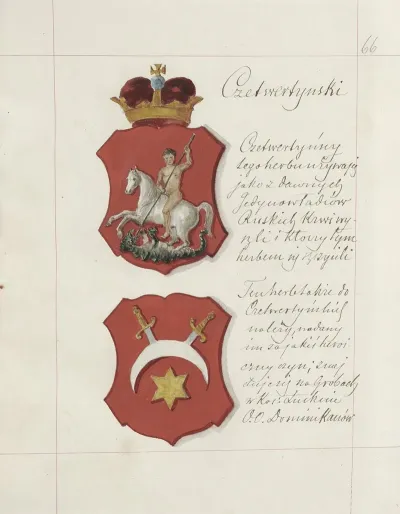 66
Czetwertynski
Czetwertyńscy
tego herbu używają
jako z dawnych
Jedynowładców
Ruskich krwi wy-
szli i którzy tym
herbem się szczycili
Ten herb także do
Czetwertyńskich
należy, nadany
im za jakiś heroi
czny czyn; znaj
duje się na Grobach
w Kośc. Łuckim
O.O. Dominikanów